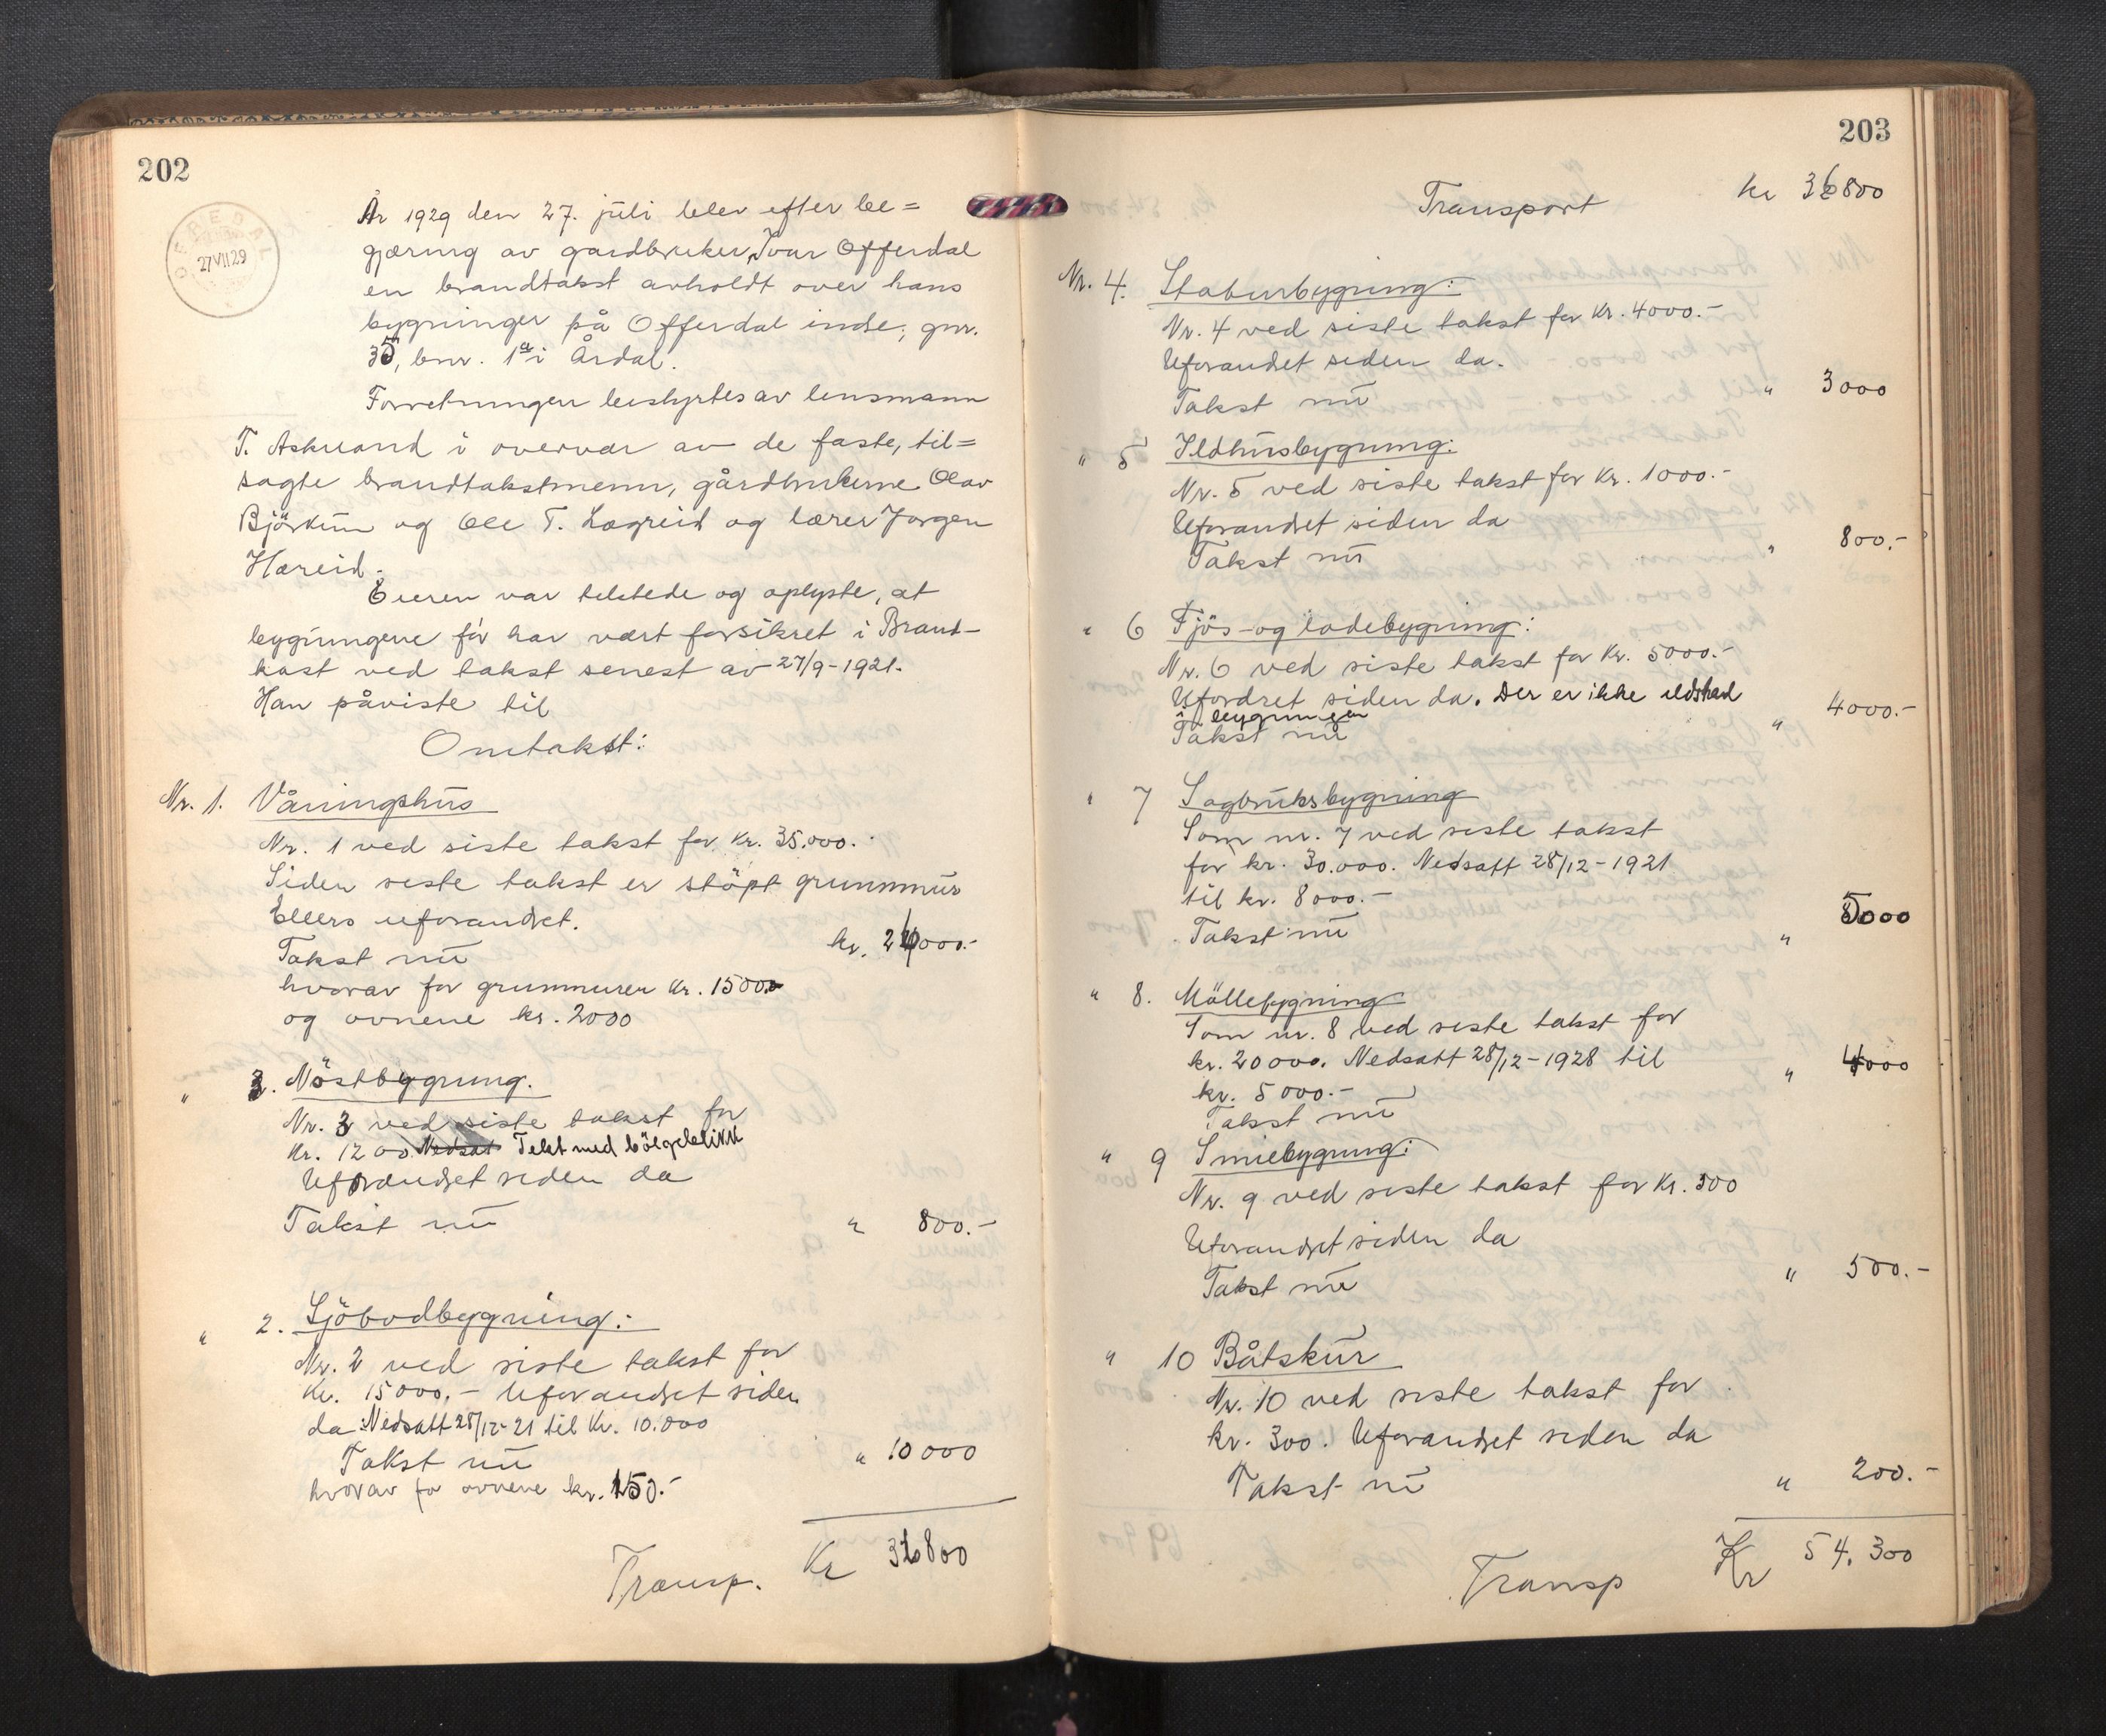 202
OFFERDAL
27 VII 29
År 1929 den 27. juli blev efter be=
gjæring av gardbruker, Ivar Offerdal
en brandtakst avholdt over hans
bygninger på Offerdal indre, gnr.
35, bnr. 1a i Årdal.
Forretningen bestyrtes av lensmann
T. Askeland i overvær av de faste, til=
sagte brandtakstmenn, gårdbrukerne Olav
Björkum og Ole T. Lægreid og lærer Jørgen
Hæreid.
Eieren var tilstede og oplyste, at
bygningene før har vært forsikret i Brand-
kast ved takst senest av 27/9-1921.
Han påviste til
Omtakst:
Nr. 1. Våningshus
Nr. 1 ved siste takst for kr. 35.000.-
Siden siste takst er støpt grunnmur
Ellers uforandret.
Takst nu kr. 26000.-
hvorav for grunnmuren kr. 1500
og ovnene kr. 2000
" 3. Nöstbygning.
Nr. 3 ved siste takst for
Kr. 1200. Nedsat Tekt med bölgeblikk
Uforandret siden da
Takst nu " 800.-
" 2. Sjöbodbygning:
Nr. 2 ved siste takst for
Kr. 15000.- Uforandret siden
da. Nedsatt 28/12-21 til Kr. 10.000
Takst nu " 10000
hvorav for ovnene kr. 150.-
Transp. Kr 36800
203
Transport kr 36800
Nr. 4. Staburbygning:
Nr. 4 ved siste takst for Kr. 4000.-
Uforandret siden da.
Takst nu " 3000
" 5 Ildhusbygning:
Nr. 5 ved siste takst for Kr. 1000.-
Uforandret siden da
Takst nu " 800.-
" 6 Fjös-og ladebygning:
Nr. 6 ved siste takst for Kr. 5000.-
Ufordret siden da. Der er ikke ildsted
i bygningen
Takst nu " 4000.-
" 7 Sagbruksbygning
Som nr. 7 ved siste takst
for kr. 30.000. Nedsatt 28/12-1921
til kr. 8000.-
Takst nu " 5000
" 8. Möllebygning
Som nr. 8 ved siste takst for
kr. 20000. Nedsatt 28/12-1928 til
kr. 5000.-
Takst nu " 4000
" 9 Smiebygning:
Nr. 9 ved siste takst for Kr. 500
Uforandret siden da
Takst nu " 500.-
" 10 Båtskur
Nr. 10 ved siste takst for
kr. 300. Uforandret siden da
Takst nu " 200.-
Transp Kr 54.300